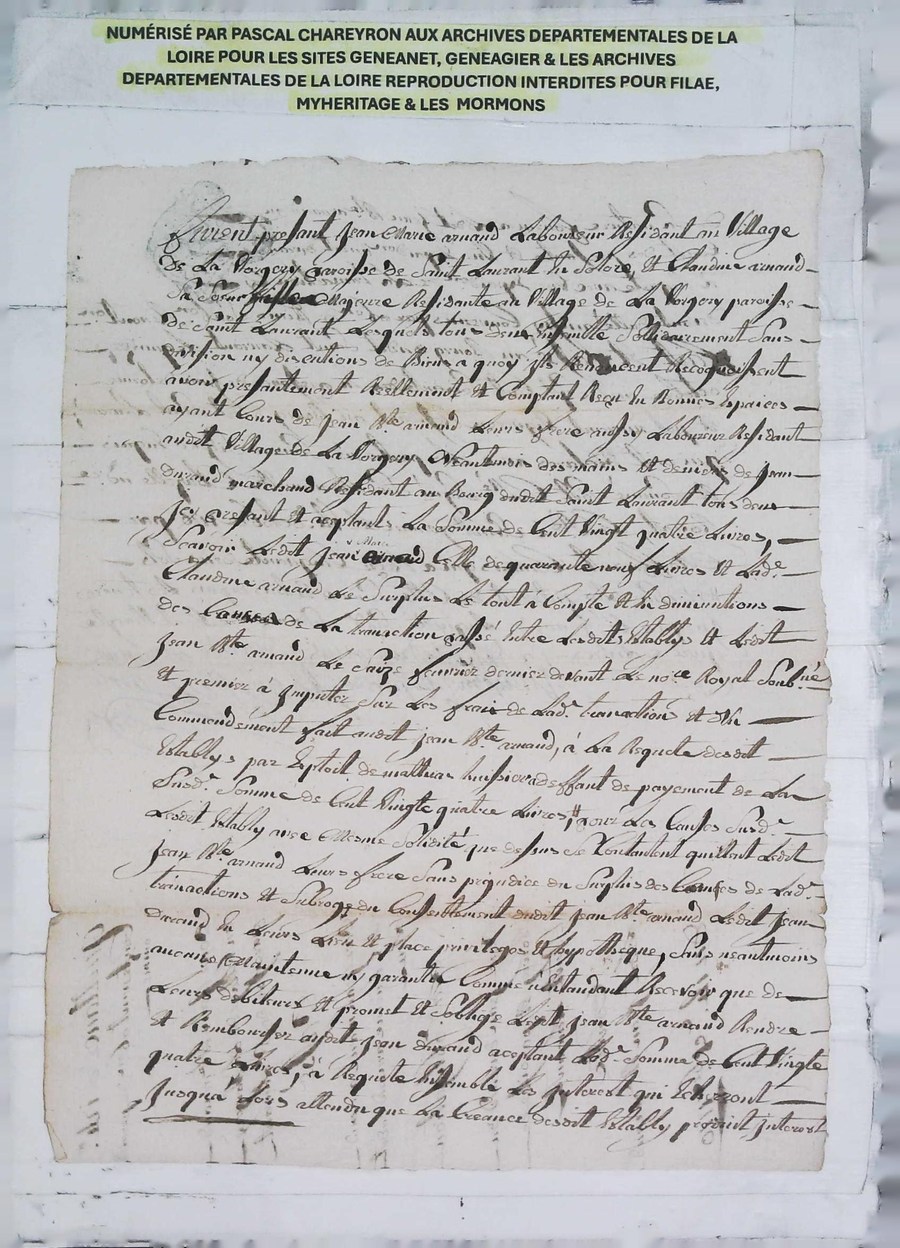 NUMÉRISÉ PAR PASCAL CHAREYRON AUX ARCHIVES DEPARTEMENTALES DE LA
LOIRE POUR LES SITES GENEANET, GENEAGIER & LES ARCHIVES
DEPARTEMENTALES DE LA LOIRE REPRODUCTION INTERDITES POUR FILAE,
MYHERITAGE & LES MORMONS
furent presant Jean Marie arnaud Laboureur Residant au Village
de La Vorgery paroisse de Saint Laurant En Soloré, et Claudine arnaud
Sa Soeur Majeure Residante au Village de La Vorgery paroisse
de Saint Laurant Lesquels tous deux ensemble Sollidairement Sans
division ny discutions de Biens a quoy ils Renoncent
avoir presantement Réellement et Comptant Reçu En Bonnes Espaices
ayant Cours de Jean Bte arnaud Leurs frere aussy Laboureur Residant
audit Village de La Vorgery Neantmois des mains et deniers de Jean
Durand marchand Residant au Bourg dudit Saint Laurant tous deux
Icy presant et aceptants La Somme de Cent Vingt quatre Livres,
Scavoir Ledit Jean Marie Celle de quarante neuf Livres et Lade
Claudine arnaud Le Surplus Le tout à Compte et En diminutions
des Causes de La transction passé Entre Lesdits Establys et Ledit
Jean Bte arnaud Le Saize feuvrier dernier devant Le nore Royal Soubné
et premier à Imputer Sur Les frais de Lade transctions et
Commendement fait audit Jean Bte arnaud, à La Requete desdit
Establys par Exploit de huissier a deffaut de payement de La
Susde Somme de Cent Vingte quatre Livres, pour Les Causes Susde
Lesdit Establys avec Mesme Solidité que dessus Se Contantent quittent Ledit
Jean Bte arnaud Leurs frere Sans prejudice du Surplus des Causes de Lade
transactions et Subroge du Consentement dudit Jean Bte arnaud Ledit Jean
Durand En Leurs Lieu et place privileges et hypotheque, Sans neantmoins
aucune Maintenue ny garantie Comme N'Entandant Recevoir que de
Leurs debiteurs et promet et Soblige Ledit Jean Bte arnaud Rendre
et Rembourser audit Jean durand aceptant Lade Somme de Cent Vingte
quatre Livres, à Requete Ensemble Les Interest qui
Jusqua Lors attendu que La Creance desdit Establys produit Interest